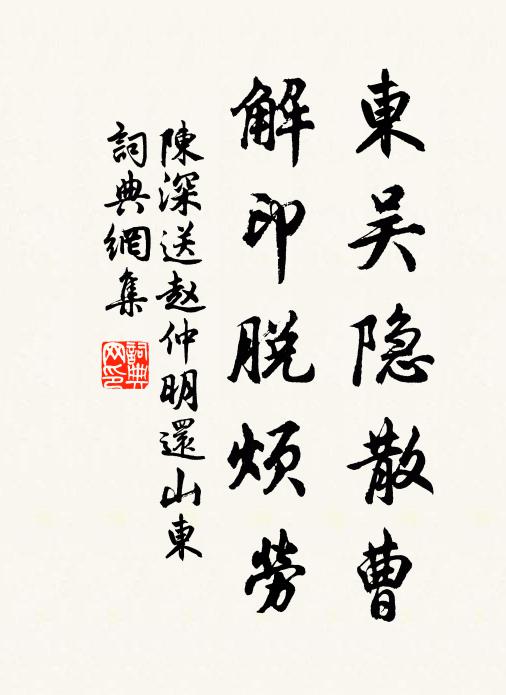 東吴隐散曹
解印脱煩勞
陳深送赵仲明還山東
詞典網集
詞典网印